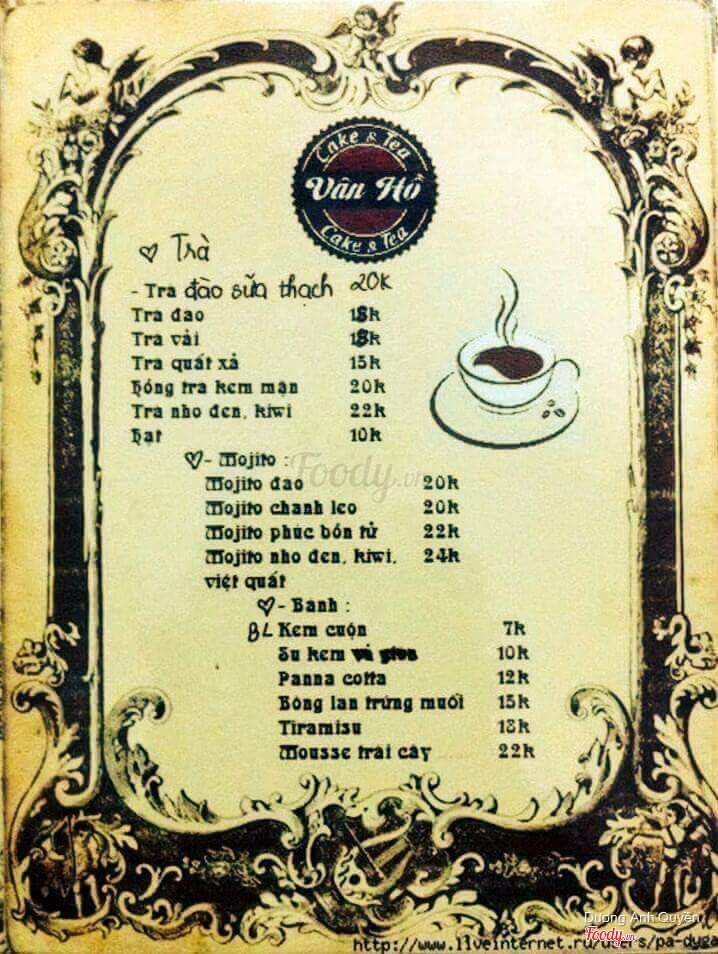 Cake & Tea
Vân Hồ
Cake & Tea
Trà
- Tra đào sữa thạch 20k
Tra đao 18k
Tra vải 18k
Tra quất xả 15k
Hồng tra kem mặn 20k
Tra nho đen, kiwi 22k
Hạt 10k
- Mojito :
Mojito đao 20k
Mojito chanh leo 20k
Mojito phúc bồn tử 22k
Mojito nho đen, kiwi, 24k
việt quất
- Banh :
BL Kem cuộn 7k
Su kem 10k
Panna cotta 12k
Bông lan trứng muối 15k
Tiramisu 18k
Mousse trái cây 22k
Foody.vn
Duong Anh Quyên
Foody.vn
http://www.liveinternet.ru/users/pa-dyga